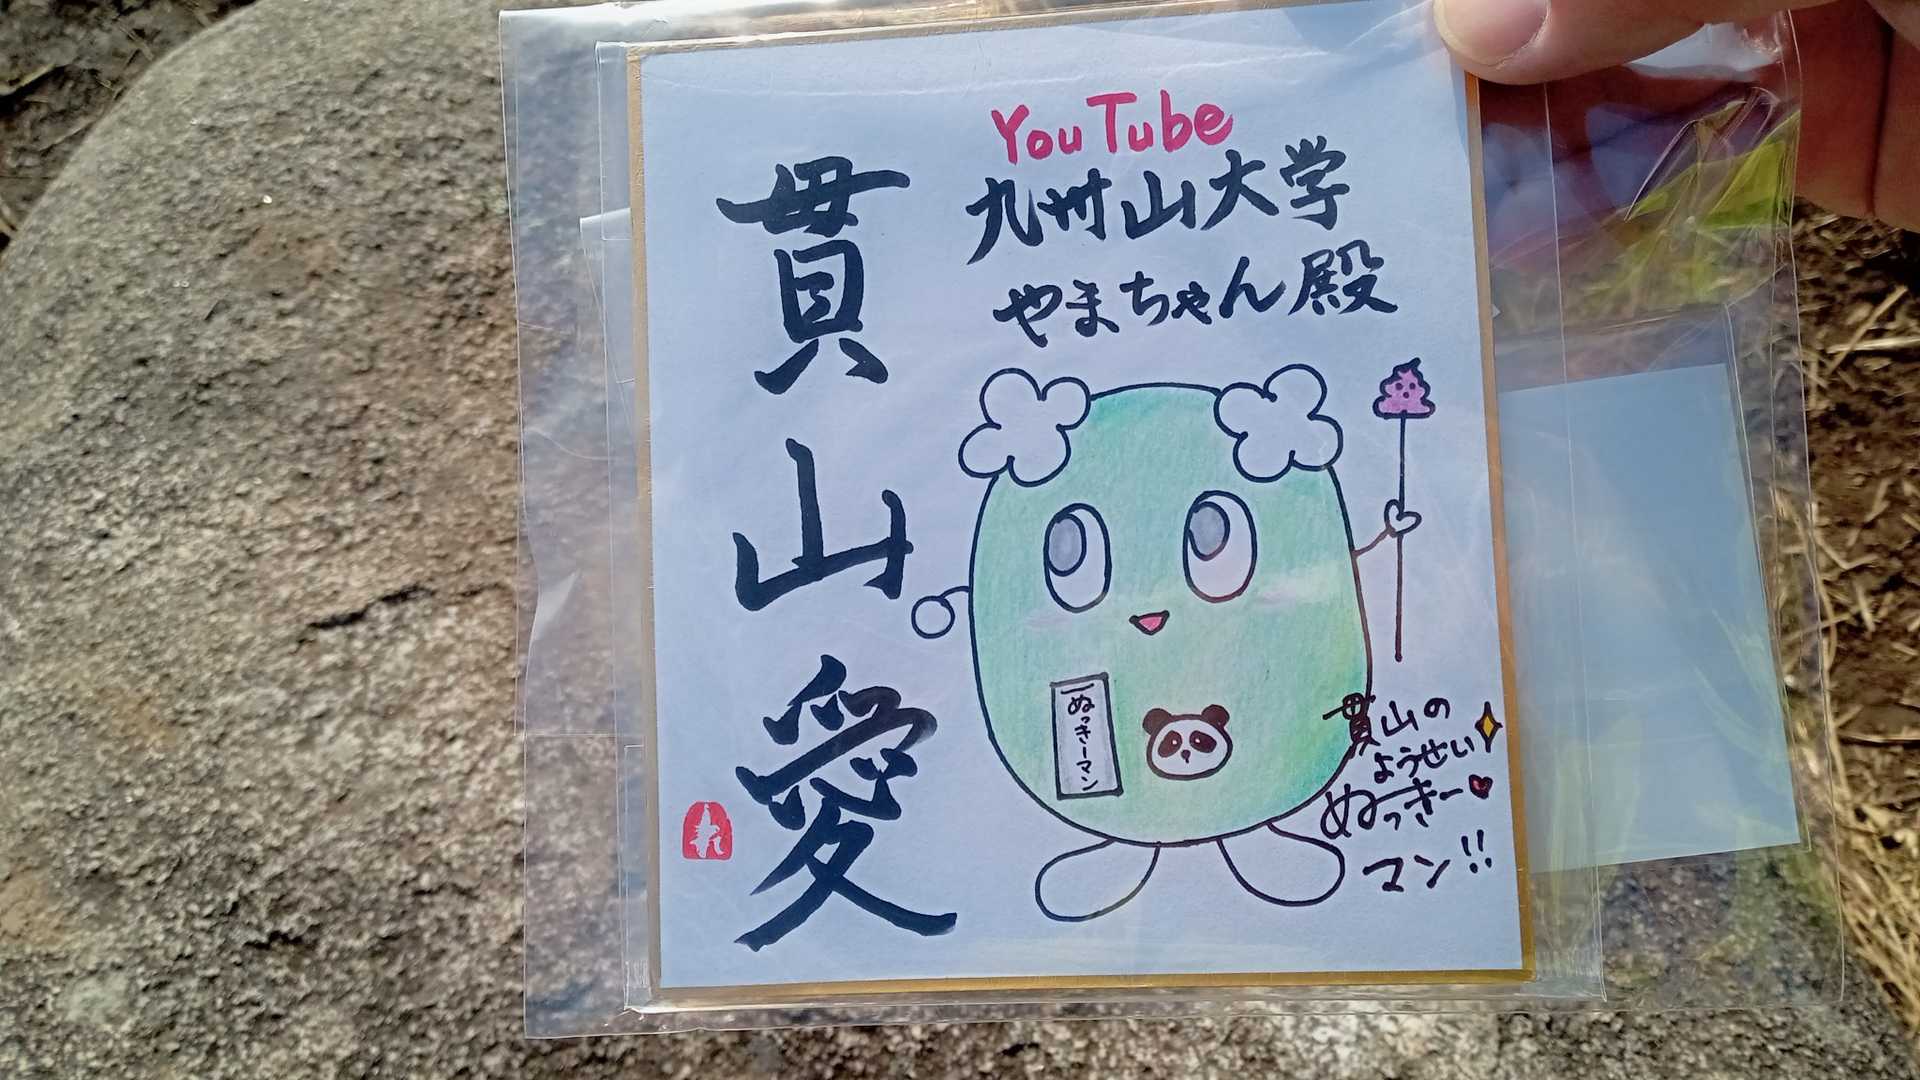 YouTube
九州山大学
やまちゃん殿
貫山愛
ぬっきーマン
貫山の
ようせい
ぬっきー
マン!!
れ